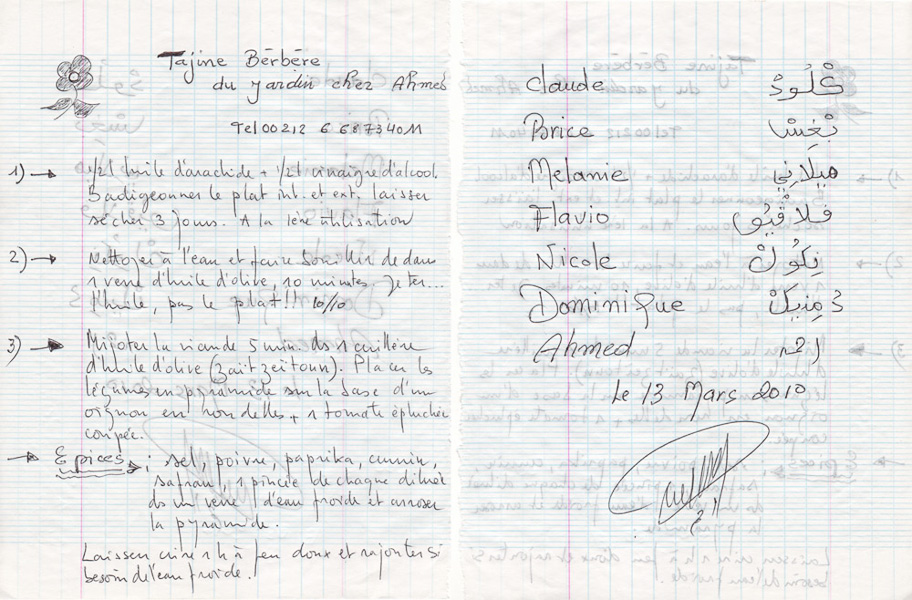 Tajine Bèrbère
du jardin chez Ahmed
Tel 00 212 6 68 73 40 11
1) → 1/2 l huile d'arachide + 1/2 l vinaigre d'alcool.
Badigeonner le plat int. et ext. laisser
sécher 3 jours. A la 1ère utilisation
2) → Nettoyer à l'eau et faire bouillir dedans
1 verre d'huile d'olive, 10 minutes. Jeter...
l'huile, pas le plat!! 10/10
3) → Mijoter la viande 5 min. ds 1 cuillère
d'huile d'olive (zait zeitoun). Placer les
légumes en pyramide sur la base d'un
oignon en rondelles + 1 tomate épluchée
coupée.
→ Epices → : sel, poivre, paprika, cumin,
safran, 1 pincée de chaque diluée
ds un verre d'eau froide et arroser
la pyramide.
Laisser cuire 1 h à feu doux et rajouter si
besoin de l'eau froide.
Claude كْلُودْ
Brice
Melanie ميلاني
Flavio فلاڤيو
Nicole نِكُولْ
Dominique دُمِنِيكْ
Ahmed احمد
Le 13 Mars 2010